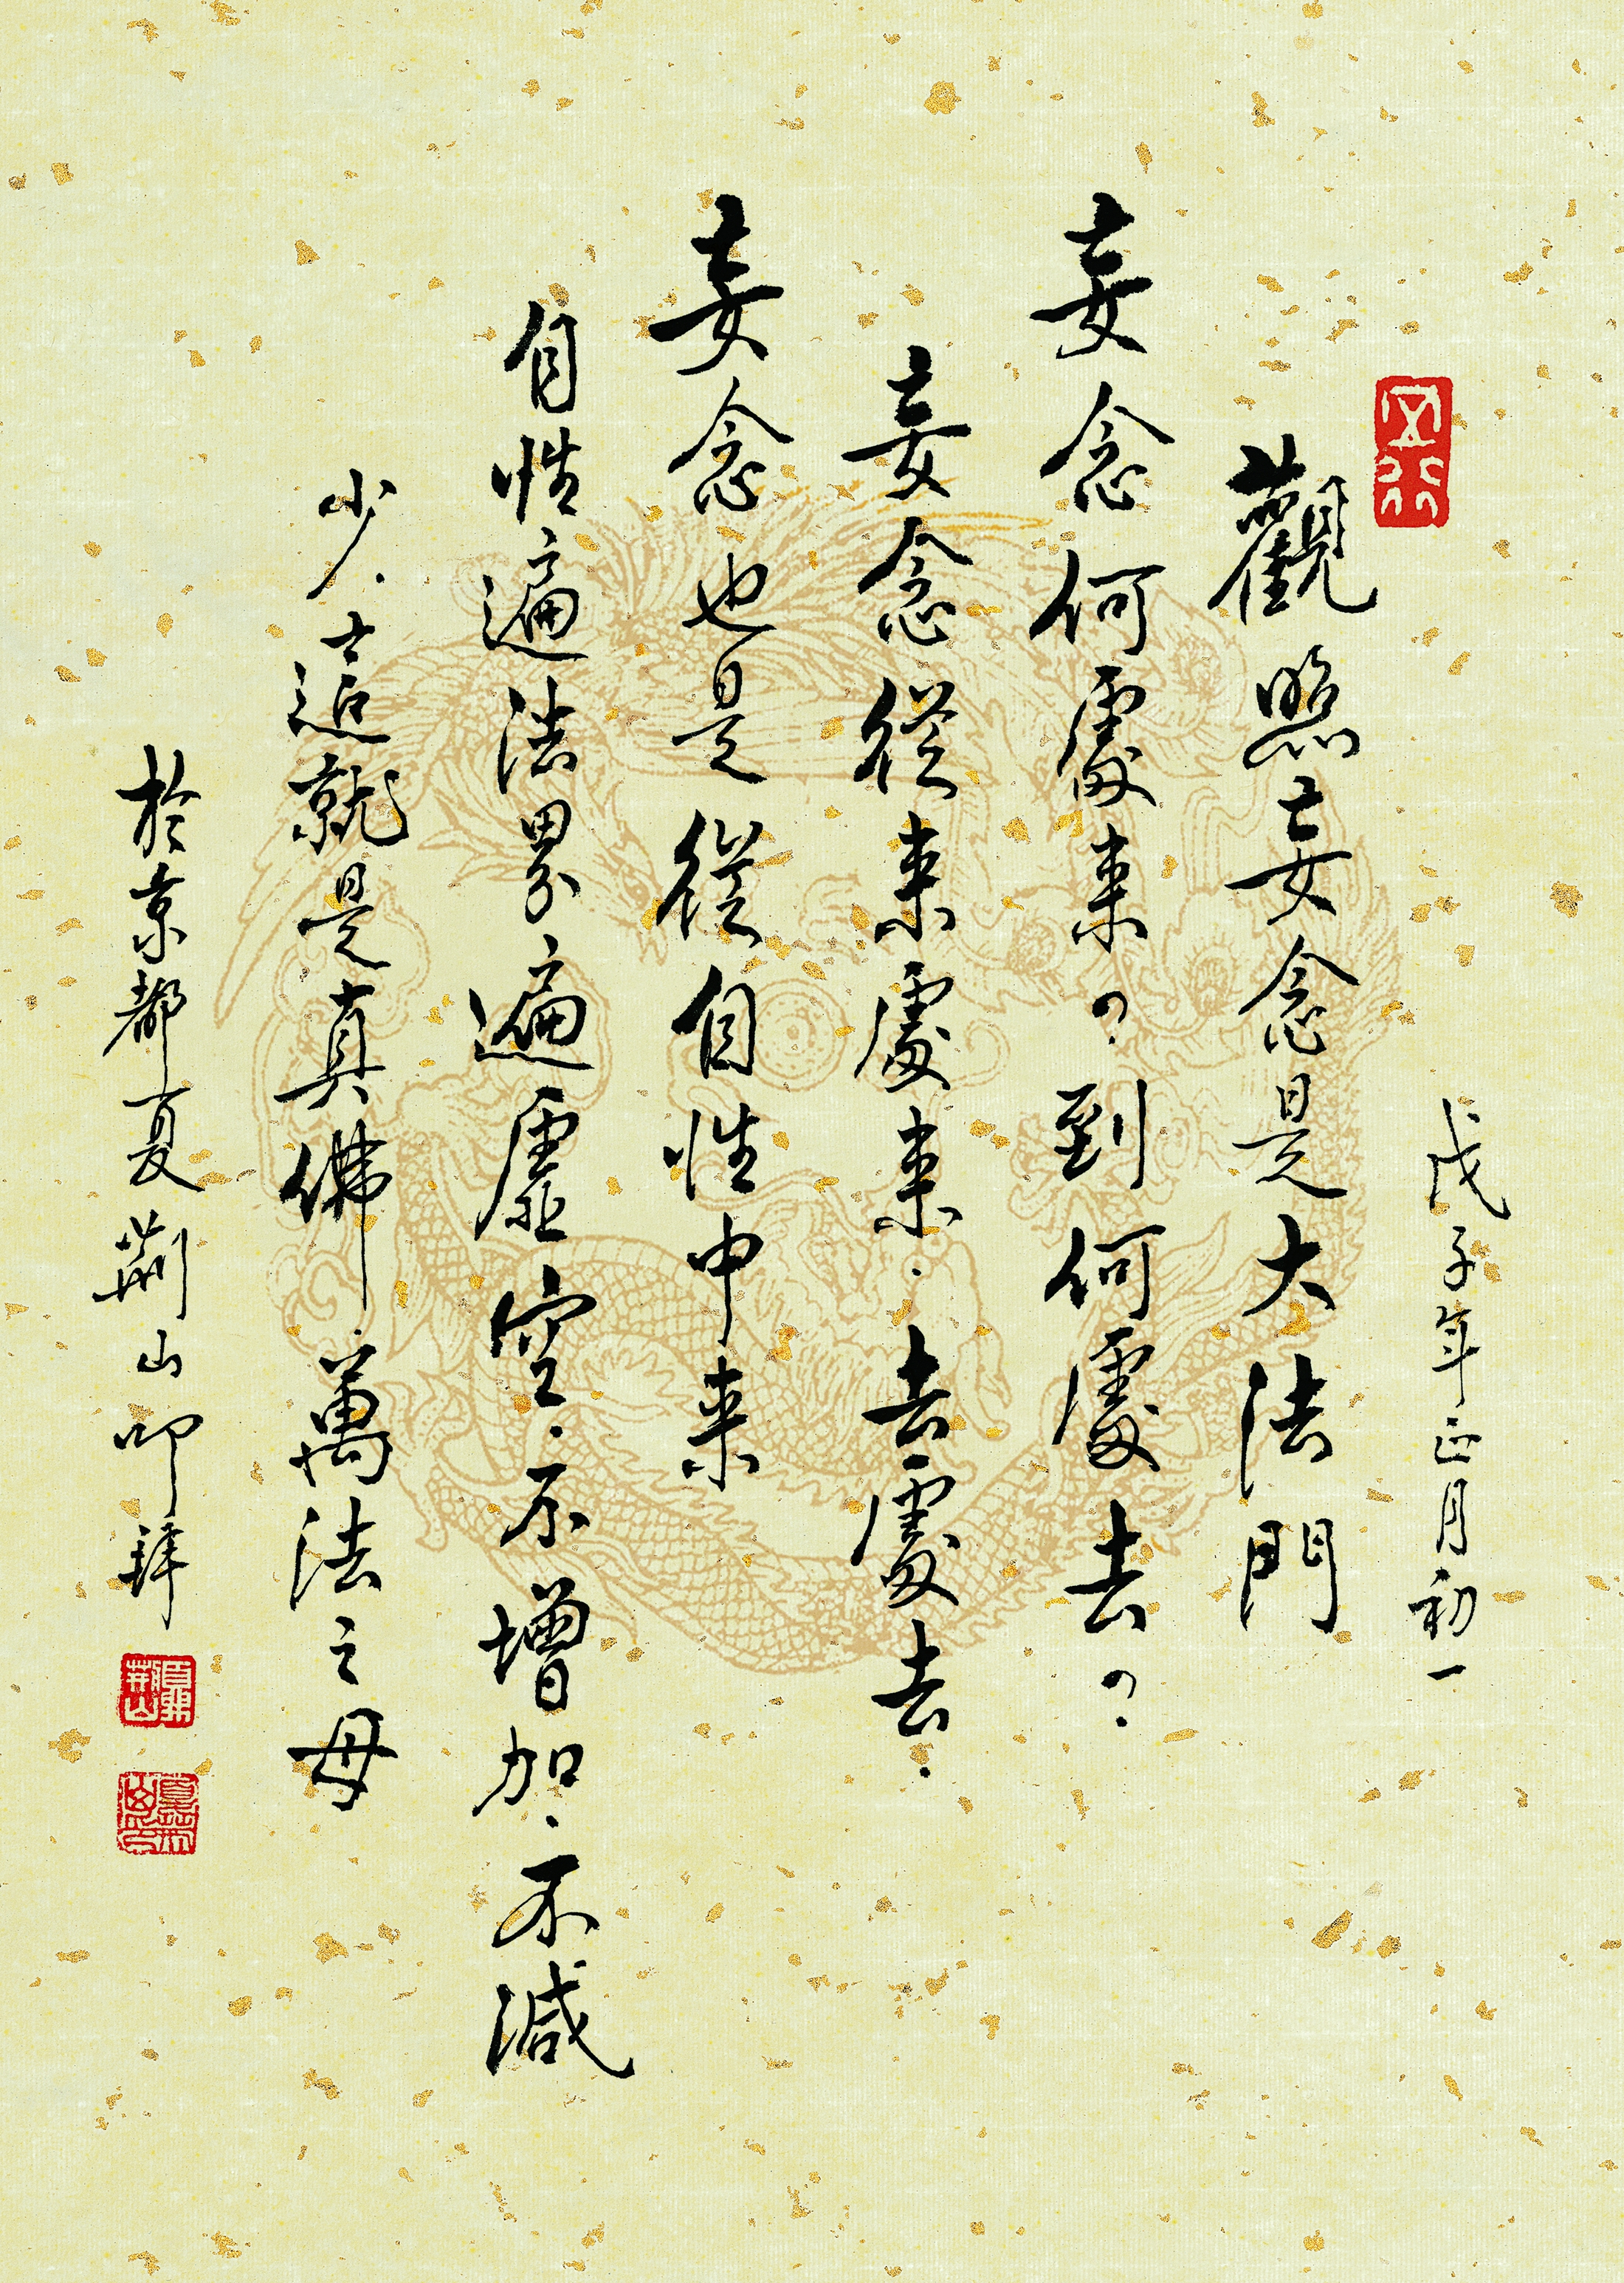 戊子年正月初一
五行
觀照妄念是大法門
妄念何處来？到何處去？
妄念從来處来.去處去.
妄念也是從自性中来
自性遍法界遍虛空.不增加.不減
少.这就是真佛萬法之母
於京都夏荊山叩拜
夏荊山